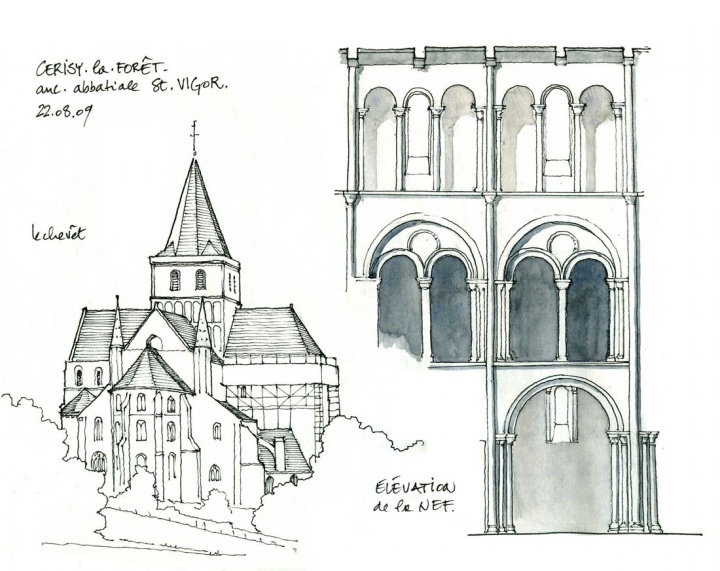 CERISY. la. FORÊT-
anc. abbatiale St. VIGOR.
22.08.09
le chevêt
ELÉVATION
de la NEF.